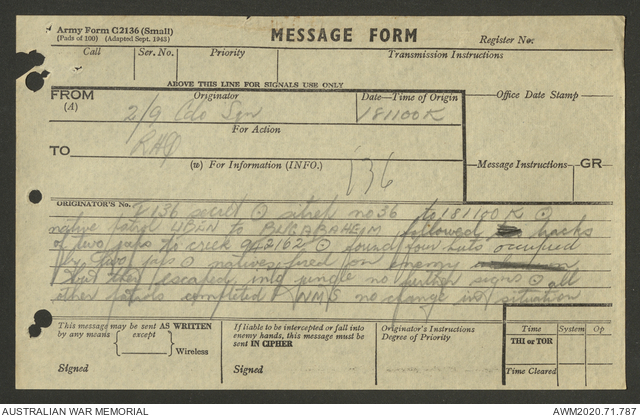 Army Form C2136 (Small)
(Pads of 100) (Adapted Sept. 1942)
MESSAGE FORM
Register No:
Call Ser. No. Priority Transmission Instructions
ABOVE THIS LINE FOR SIGNALS USE ONLY
FROM Originator Date—Time of Origin Office Date Stamp
(A) 2/9 Cdo Sqn 181100K
For Action
TO RHQ
(w) For Information (INFO.) Message Instructions GR
136
ORIGINATOR'S No. 136 secret ⊙ sitrep no 36 to 181100 K ⊙
native patrol to followed tracks
of two japs to creek 942162 ⊙ found four huts occupied
by two japs ⊙ natives fired on enemy
but they escaped into jungle no further signs ⊙ all
other patrols completed NMS no change in situation
This message may be sent AS WRITTEN
by any means (except
) Wireless
Signed
If liable to be intercepted or fall into
enemy hands, this message must be
sent IN CIPHER
Signed
Originator's Instructions
Degree of Priority
Time System Op
THI or TOR
Time Cleared
AUSTRALIAN WAR MEMORIAL AWM2020.71.787